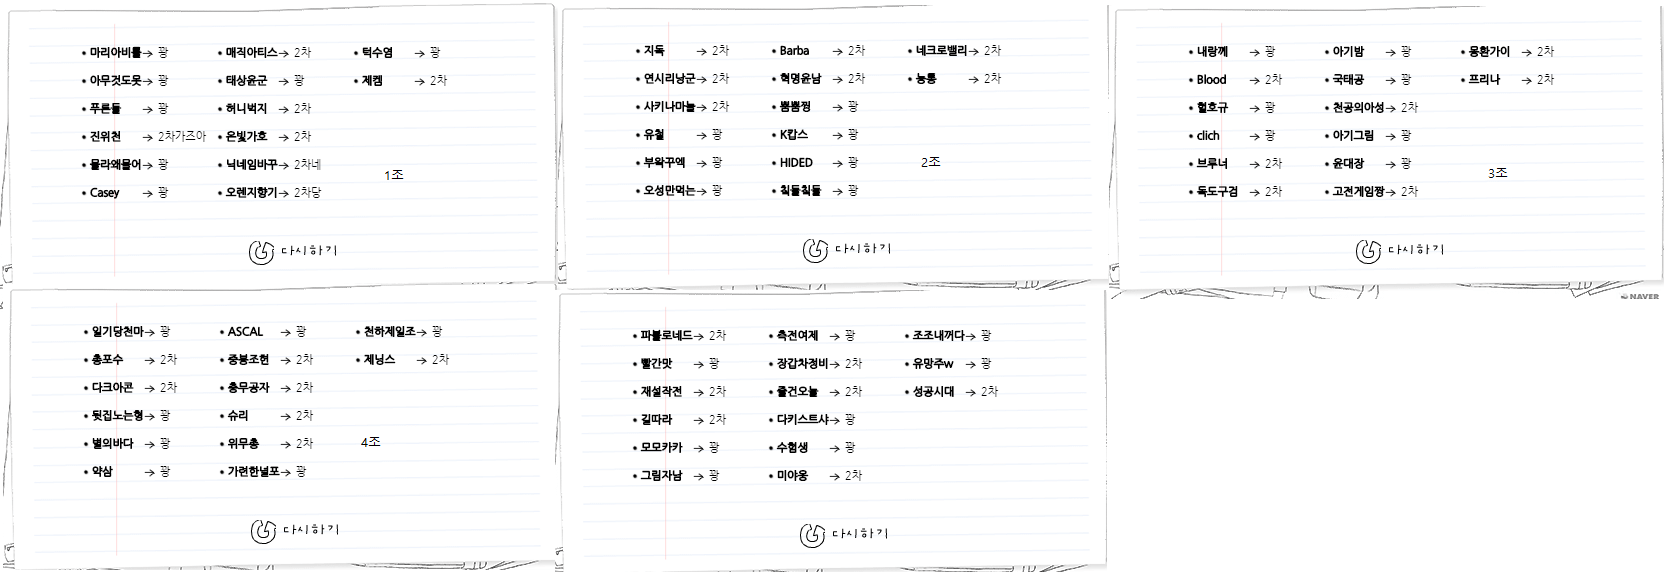 • 마리아비틀→ 꽝 • 매직아티스→ 2차 • 턱수염 → 꽝
• 아무것도못→ 꽝 • 태상윤군 → 꽝 • 제켐 → 2차
• 푸른들 → 꽝 • 허니벅지 → 2차
• 진위천 → 2차가즈아 • 은빛가호 → 2차
• 몰라왜물어→ 꽝 • 닉네임바꾸→ 2차네
1조
• Casey → 꽝 • 오렌지향기→ 2차당
다시하기
• 지독 → 2차 • Barba → 2차 • 네크로밸리→ 2차
• 연시리낭군→ 2차 • 혁명윤남 → 2차 • 농통 → 2차
• 사키나마늘→ 2차 • 뿜뿜찡 → 꽝
• 유철 → 꽝 • K캅스 → 꽝
• 부왁꾸엑 → 꽝 • HIDED → 꽝
2조
• 오성만먹는→ 꽝 • 칰들칰들 → 꽝
다시하기
• 내랑께 → 꽝 • 아기밤 → 꽝 • 몽환가이 → 2차
• Blood → 2차 • 국태공 → 꽝 • 프리나 → 2차
• 혈호규 → 꽝 • 천공의아성→ 2차
• clich → 꽝 • 아기그림 → 꽝
• 브루너 → 2차 • 윤대장 → 꽝
3조
• 독도구검 → 2차 • 고전게임짱→ 2차
다시하기
NAVER
• 일기당천마→ 꽝 • ASCAL → 꽝 • 천하제일조→ 꽝
• 총포수 → 2차 • 중봉조헌 → 2차 • 제닝스 → 2차
• 다크아콘 → 2차 • 충무공자 → 2차
• 뒷집노는형→ 꽝 • 슈리 → 2차
• 별의바다 → 꽝 • 위무총 → 2차
4조
• 약삼 → 꽝 • 가련한널포→ 꽝
다시하기
• 파블로네드→ 2차 • 측전여제 → 꽝 • 조조내꺼다→ 꽝
• 빨간맛 → 꽝 • 장갑차정비→ 2차 • 유망주w → 꽝
• 재설작전 → 꽝 • 즐건오늘 → 2차 • 성공시대 → 2차
• 길따라 → 2차 • 다키스트샤→ 꽝
• 모모카카 → 꽝 • 수험생 → 꽝
• 그림자남 → 꽝 • 미야옹 → 2차
다시하기